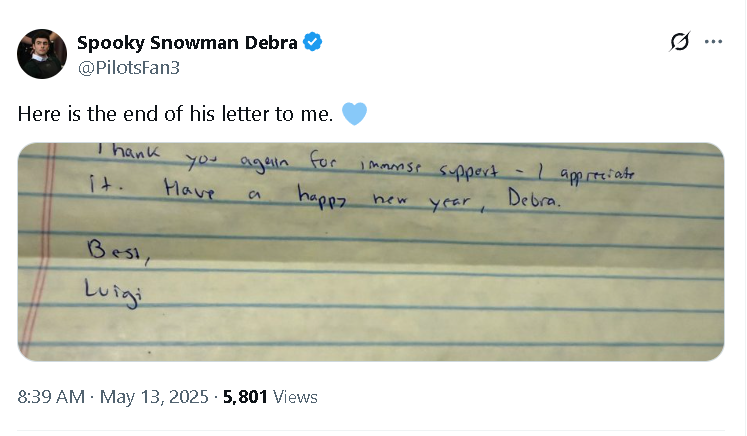 Spooky Snowman Debra
@PilotsFan3
Here is the end of his letter to me.
Thank you again for immense support - I appreciate
it. Have a happy new year, Debra.
Best,
Luigi
8:39 AM · May 13, 2025 · 5,801 Views